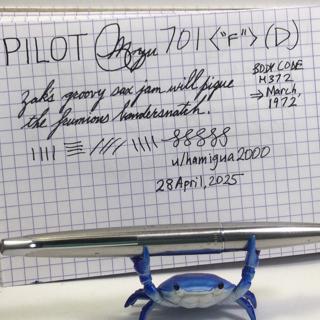 PILOT Myu 701 <"F"> (D)
Zak's groovy sax jam will pique
the frumious bandersnatch.
BODY CODE
H372
⇒ March,
1972
u/hamigua2000
28 April, 2025